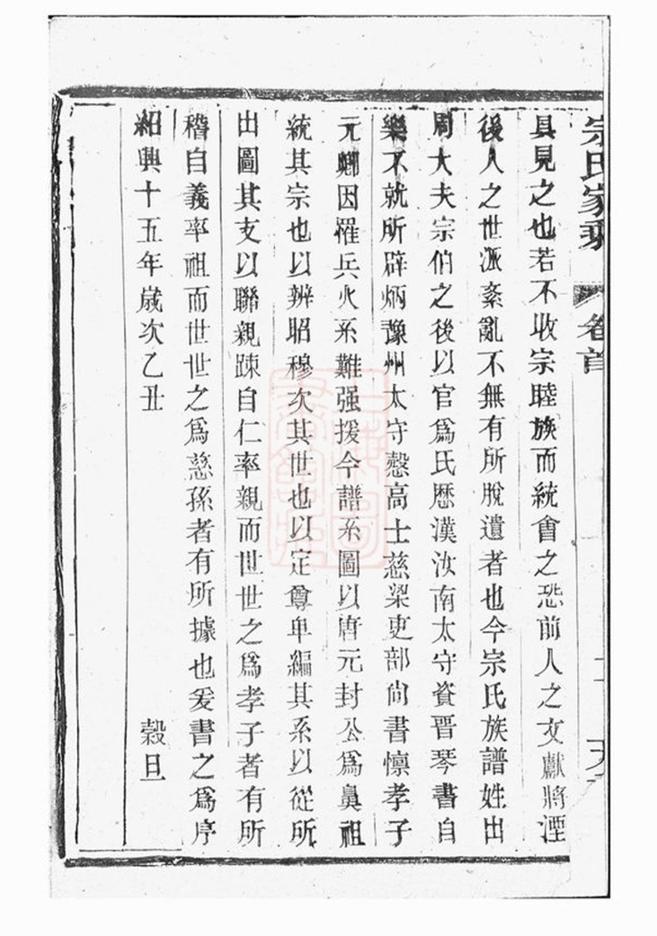 宗氏家乘 卷首
具見之也若不收宗睦族而統會之恐前人之文獻將湮
後人之世派紊亂不無有所脫遺者也今宗氏族譜姓出
周大夫宗伯之後以官爲氏歷漢汝南太守資晋琴書自
樂不就所辟炳豫州太守慤高士慈梁吏部尚書懍孝子
元卿因罹兵火系難强援今譜系圖以唐元封公爲鼻祖
統其宗也以辨昭穆次其世也以定尊卑編其系以從所
出圖其支以聯親踈自仁率親而世世之爲孝子者有所
稽自義率祖而世世之爲慈孫者有所據也爰書之爲序
紹興十五年歲次乙丑 穀旦